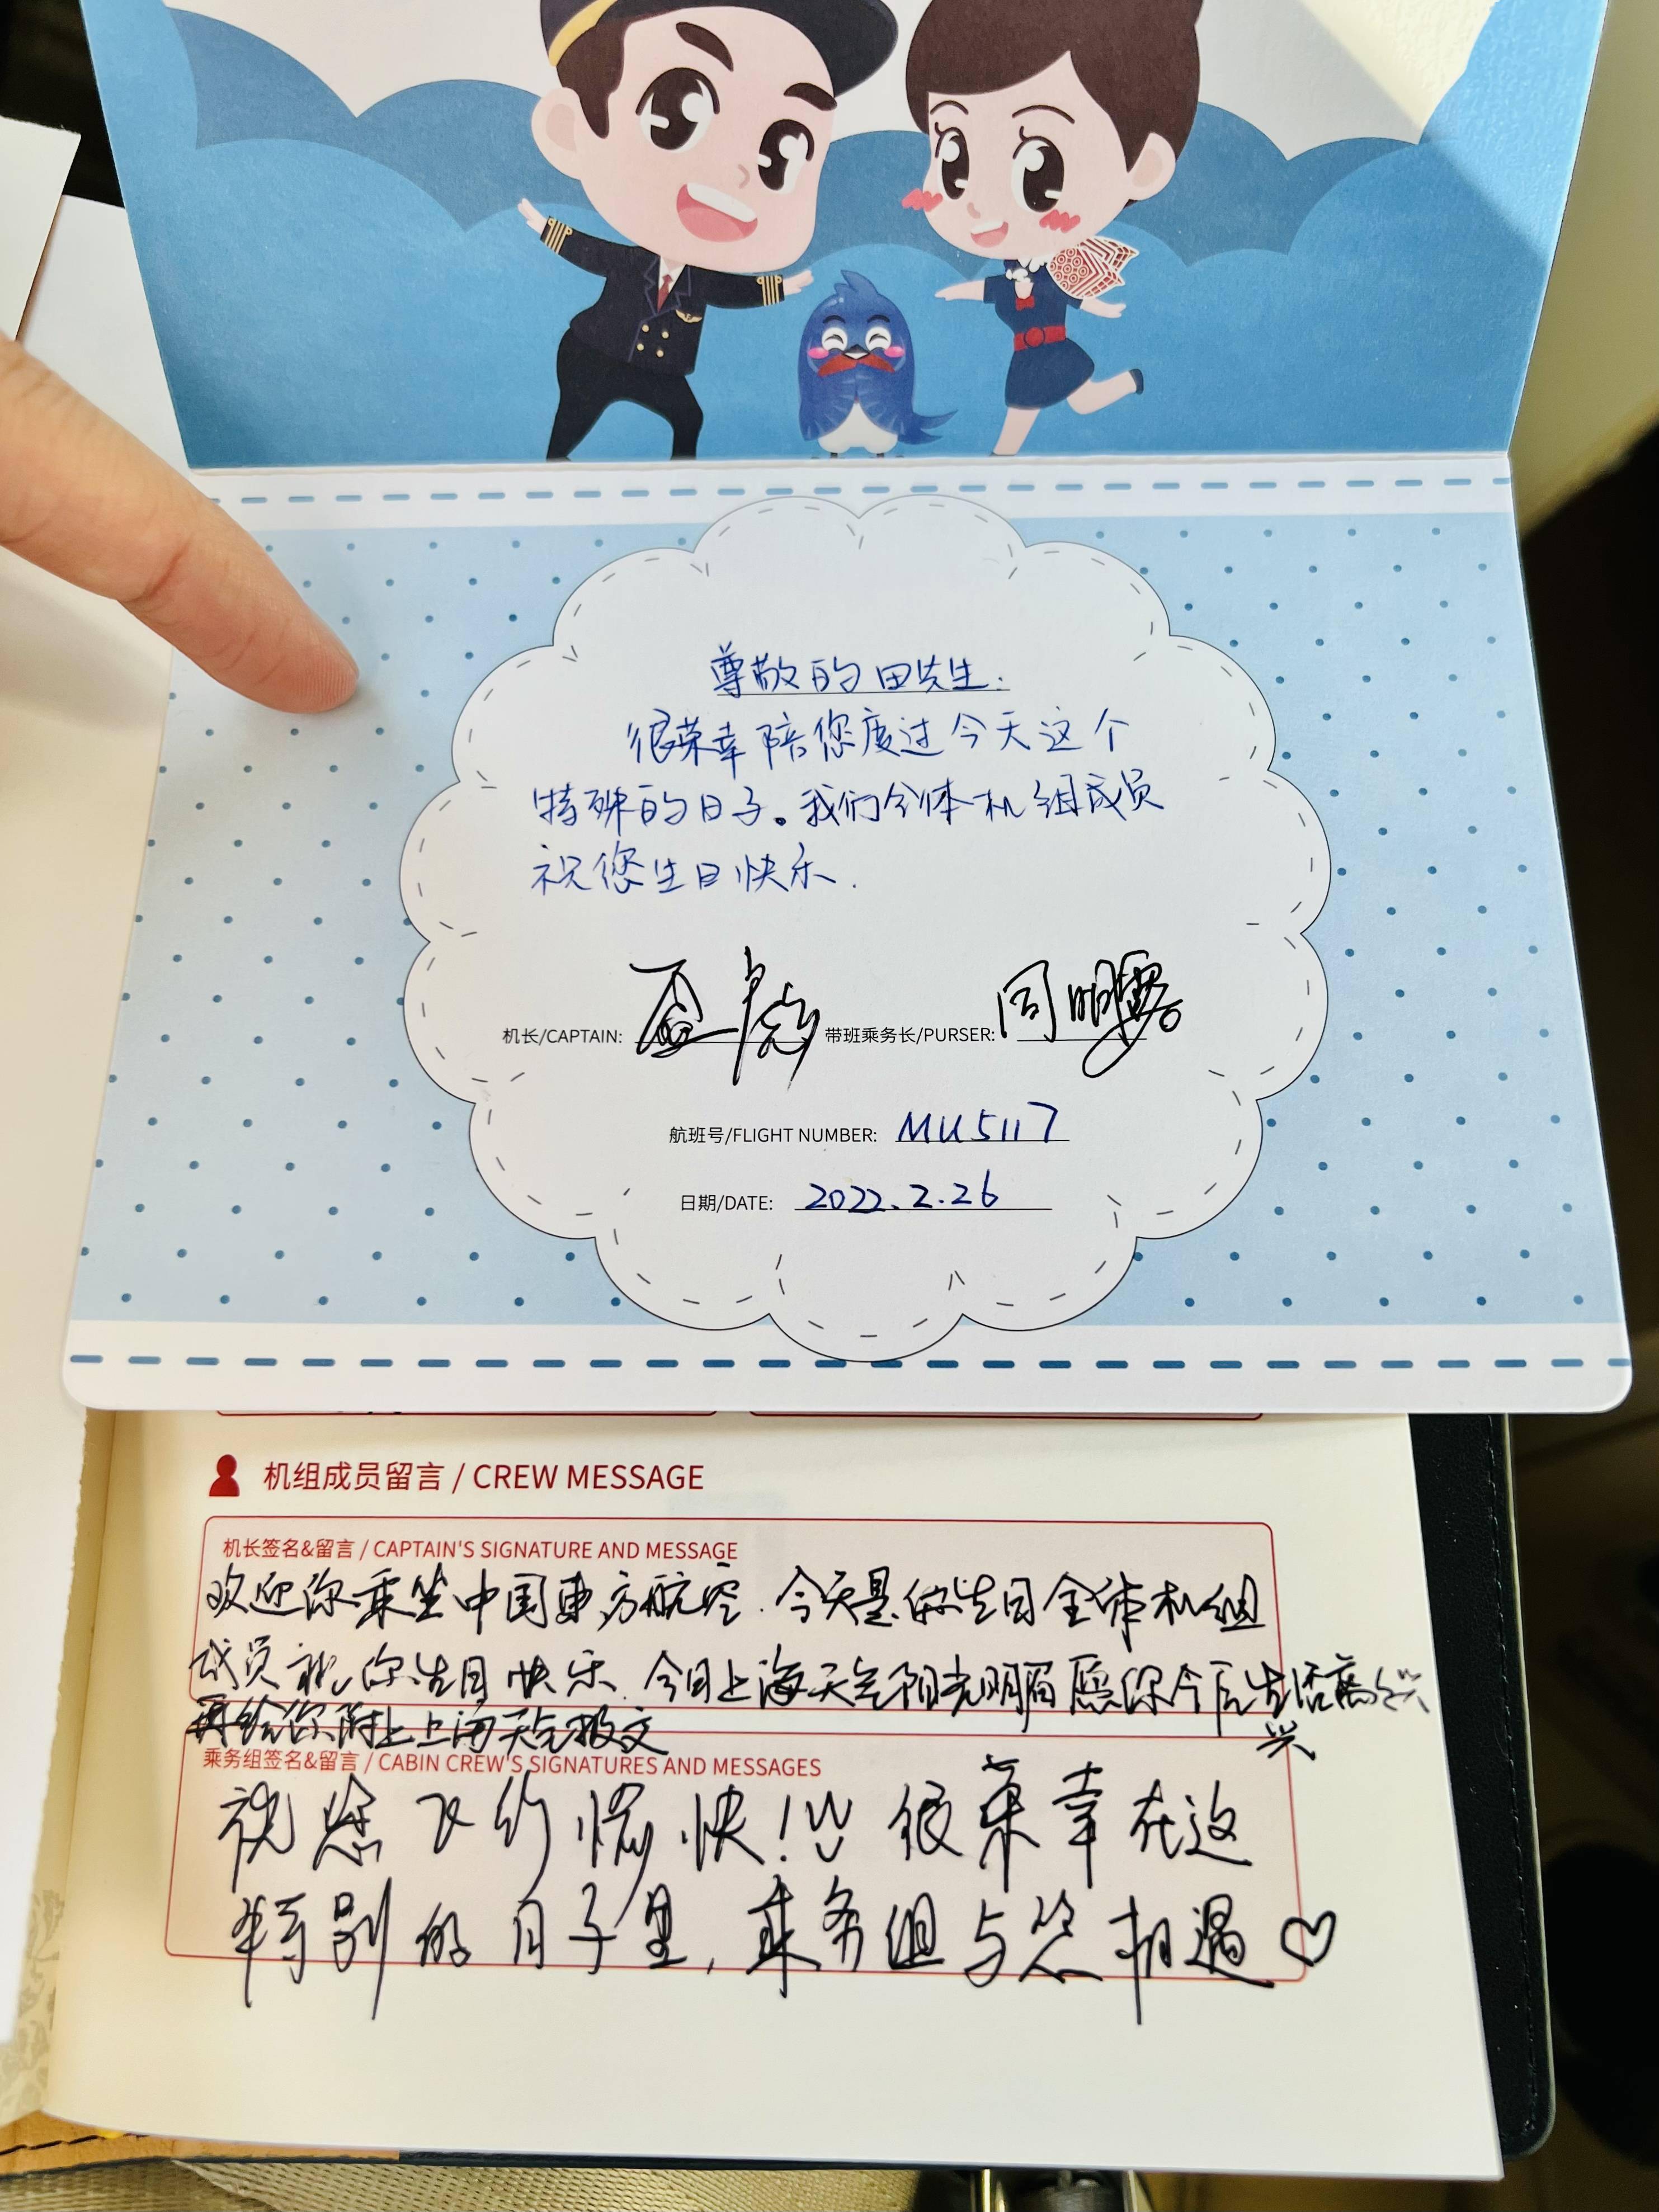 尊敬的田先生:
很荣幸陪您度过今天这个
特殊的日子。我们全体机组成员
祝您生日快乐.
机长/CAPTAIN:
带班乘务长/PURSER: 周明霞
航班号/FLIGHT NUMBER: MU5117
日期/DATE: 2022.2.26
机组成员留言 / CREW MESSAGE
机长签名&留言 / CAPTAIN'S SIGNATURE AND MESSAGE
欢迎你乘坐中国东方航空.今天是你生日全体机组
成员祝你生日快乐.今日上海天气阳光明媚愿你今后生活高兴
再给你附上上海天气报文
乘务组签名&留言 / CABIN CREW'S SIGNATURES AND MESSAGES
祝您飞行愉快! 很荣幸在这
特别的日子里,乘务组与您相遇♡